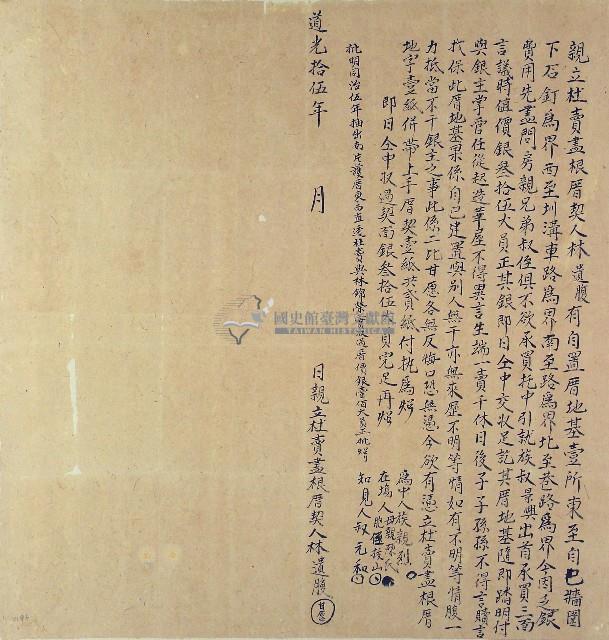 親立杜賣盡根厝契人林遺腹有自置厝地基壹所東至自己牆圍
下石釘為界西至圳溝車路為界南至路為界北至巷路為界今因乏銀
費用先盡問房親兄弟叔侄俱不欲承買托中引就族叔景興出首承買三面
言議時值價銀叁拾伍大員正其銀即日仝中交收足訖其厝地基隨即踏明付
與銀主掌管任從起造華屋不得異言生端一賣千休日後子子孫孫不得言贖言
找保此厝地基果係自己建置與別人無干亦無來歷不明等情如有不明等情腹一
力抵當不干銀主之事此係二比甘愿各無反悔口恐無憑今欲有憑立杜賣盡根厝
地字壹紙併帶上手厝契壹紙共貳紙付執為炤
即日仝中收過契面銀叁拾伍大員完足再炤
批明同治伍年抽出 護厝東西直透杜賣與林錦榮 價銀壹佰大員正批炤
為中人族親烈
在場人母親 氏
胞 山
知見人叔元和
道光拾伍年 月 日親立杜賣盡根厝契人林遺腹
甘愿
國史館臺灣文獻館
TAIWAN HISTORICA